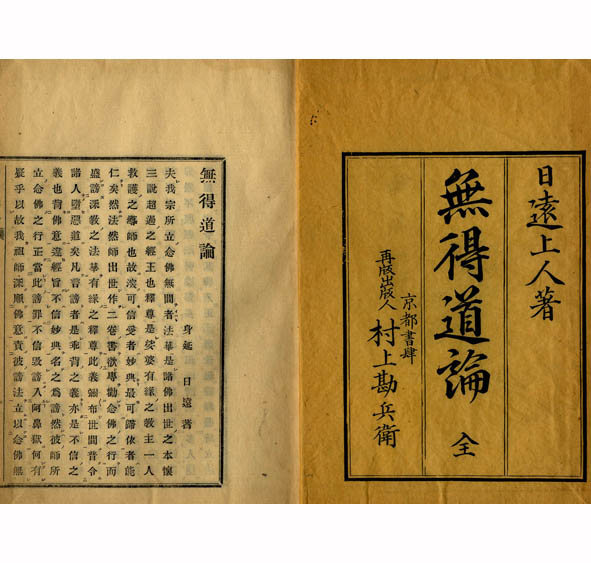 日遠上人著
無得道論 全
京都書肆
再版出版人 村上勘兵衛
無得道論
身延 日遠著
夫我宗所立念佛無間者法華是諸佛出世之本懷
三說超過之經王也釋尊是娑婆有緣之教主一人
救護之導師也故深可信愛者妙典最可歸依者能
仁矣然法然師出世作二卷書欲專勸念佛之行而
盛謗深教之法華有緣之釋尊此義彌布世間普令
諸人墮惡道矣凡言謗者是乖背之義亦是不信之
義也背佛意違經旨不信妙典名之爲謗然彼師所
立念佛之行正當此謗罪不信毀謗入阿鼻獄何有
疑乎以故我祖師深順佛意責彼謗法立以念佛無